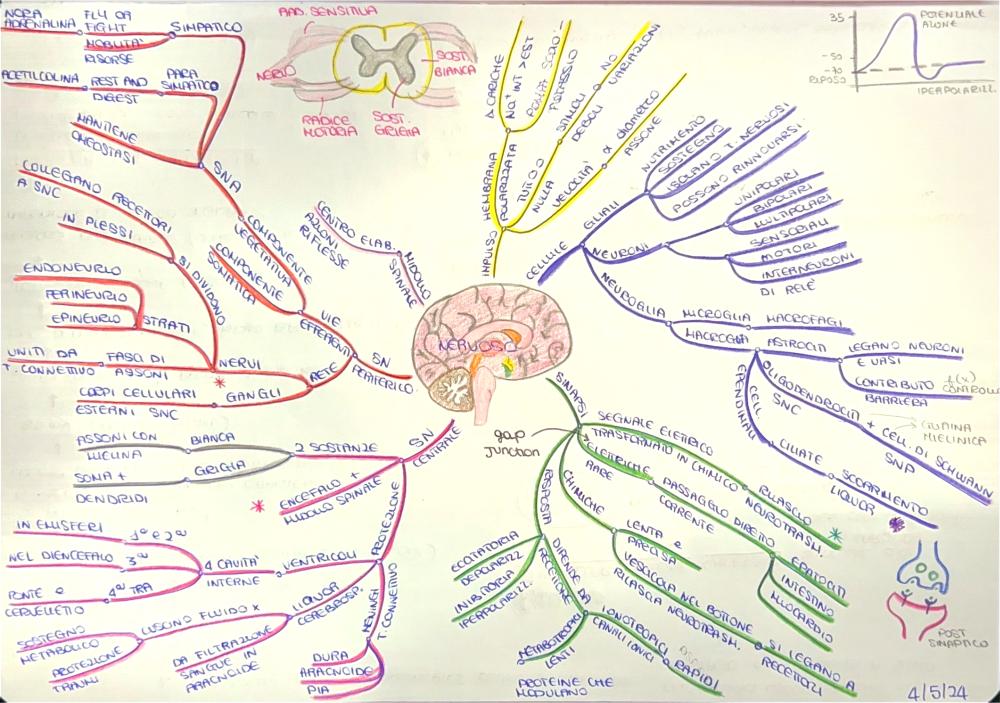 NORA
ADRENALINA
FLY OR
FIGHT
MOBILITA'
RISORSE
SIMPATICO
ACETILCOLINA
REST AND
DIGEST
PARA
SIMPATICO
MANTIENE
OMEOSTASI
SNA
COLLEGANO RECETTORI
A SNC
IN PLESSI
SI DIVIDONO
ENDONEURIO
PERINEURIO
EPINEURIO
STRATI
UNITI DA
T. CONNETTIVO
FASCI DI
ASSONI
NERVI
*
CORPI CELLULARI
ESTERNI SNC
GANGLI
RETE
COMPONENTE
VEGETATIVA
COMPONENTE
SOMATICA
VIE
EFFERENTI
SN
PERIFERICO
RAD. SENSITIVA
NERVO
SOST.
BIANCA
RADICE
MOTORIA
SOST.
GRIGIA
CENTRO ELAB.
AZIONI
RIFLESSE
MIDOLLO
SPINALE
NERVOSO
IMPULSO
MEMBRANA
POLARIZZATA
Δ CARICHE
Na⁺ INT > EST
TUTTO O
NULLA
STIMOLI
DEBOLI
NO
VARIAZIONI
VELOCITA'
α DIAMETRO
ASSONE
35
-50
-70
RIPOSO
POTENZIALE
AZIONE
IPERPOLARIZZ.
CELLULE
GLIALI
NUTRIMENTO
SOSTEGNO
ISOLANO T. NERVOSI
POSSONO RINNOVARSI
NEURONI
UNIPOLARI
BIPOLARI
MULTIPOLARI
SENSORIALI
MOTORI
INTERNEURONI
DI RELE'
NEUROGLIA
MICROGLIA
MACROFAGI
MACROGLIA
ASTROCITI
LEGANO NEURONI
E VASI
CONTRIBUTO
BARRIERA
f(x)
CONTROLLO
OLIGODENDROCITI
SNC
+ CELL. DI SCHWANN
SNP
GUAINA
MIELINICA
CELL
EPENDIMALI
CILIATE
SCORRIMENTO
LIQUOR
*
SINAPSI
gap
junction
SEGNALE ELETTRICO
TRASFORMATO IN CHIMICO
RILASCIO
NEUROTRASM.
*
ELETTRICHE
RARE
PASSAGGIO DIRETTO
CORRENTE
EPATOCITI
INTESTINO
MIOCARDIO
CHIMICHE
LENTA e
PRECISA
VESCICOLA NEL BOTTONE
RILASCIA NEUROTRASM.
SI LEGANO A
RECETTORI
RISPOSTA
ECCITATORIA
DEPOLARIZZ
INIBITORIA
IPERPOLARIZZ.
DIPENDE DA
RECETTORE
IONOTROPICI
CANALI IONICI
RAPIDI
METABOTROPICI
LENTI
PROTEINE CHE
MODULANO
POST
SINAPTICO
4/5/24
SN
CENTRALE
2 SOSTANZE
BIANCA
ASSONI CON
MIELINA
GRIGIA
SOMA +
DENDRIDI
ENCEFALO +
MIDOLLO SPINALE
*
PROTEZIONE
VENTRICOLI
4 CAVITA'
INTERNE
1° e 2°
IN EMISFERI
3°
NEL DIENCEFALO
4° TRA
PONTE e
CERVELLETTO
LIQUOR
CEREBROSP.
LUSCINO FLUIDO x
SOSTEGNO
METABOLICO
PROTEZIONE
TRAUMI
DA FILTRAZIONE
SANGUE IN
ARACNOIDE
MENINGI
T. CONNETTIVO
DURA
ARACNOIDE
PIA